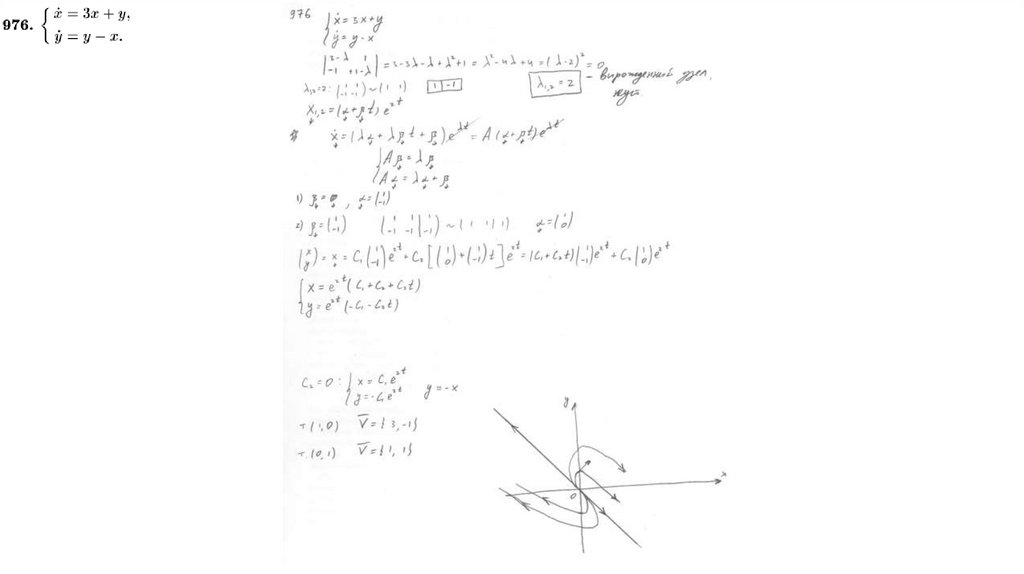 976. { ẋ = 3x + y,
ẏ = y − x.
976 { ẋ = 3x + y
ẏ = y - x
| 3-λ 1 | = 3 - 3λ - λ + λ² + 1 = λ² - 4λ + 4 = (λ-2)² = 0
| -1 1-λ |
λ₁,₂ = 2 - вырожденный узел,
λ₁,₂=2: (1 1 -1 -1) ~ (1 1) |1|-1|
x₁,₂ = (α + βt) e^{2t}
ẋ = (λα + λβt + β) e^{λt} = A(α + βt) e^{λt}
{ Aβ = λβ
Aα = λα + β
1) β = 0, α = (1 -1)
2) β = (1 -1) (1 1 | 1 -1 -1 | -1) ~ (1 1 | 1) α = (1 0)
(x y) = x = C₁ (1 -1) e^{2t} + C₂ [(1 0) + (1 -1) t] e^{2t} = (C₁ + C₂t) (1 -1) e^{2t} + C₂ (1 0) e^{2t}
{ x = e^{2t} (C₁ + C₂ + C₂t)
y = e^{2t} (-C₁ - C₂t)
C₂ = 0 : { x = C₁e^{2t}
y = -C₁e^{2t} y = -x
т. (1,0) V̅ = {3, -1}
т. (0,1) V̅ = {1, 1}
y
x
0